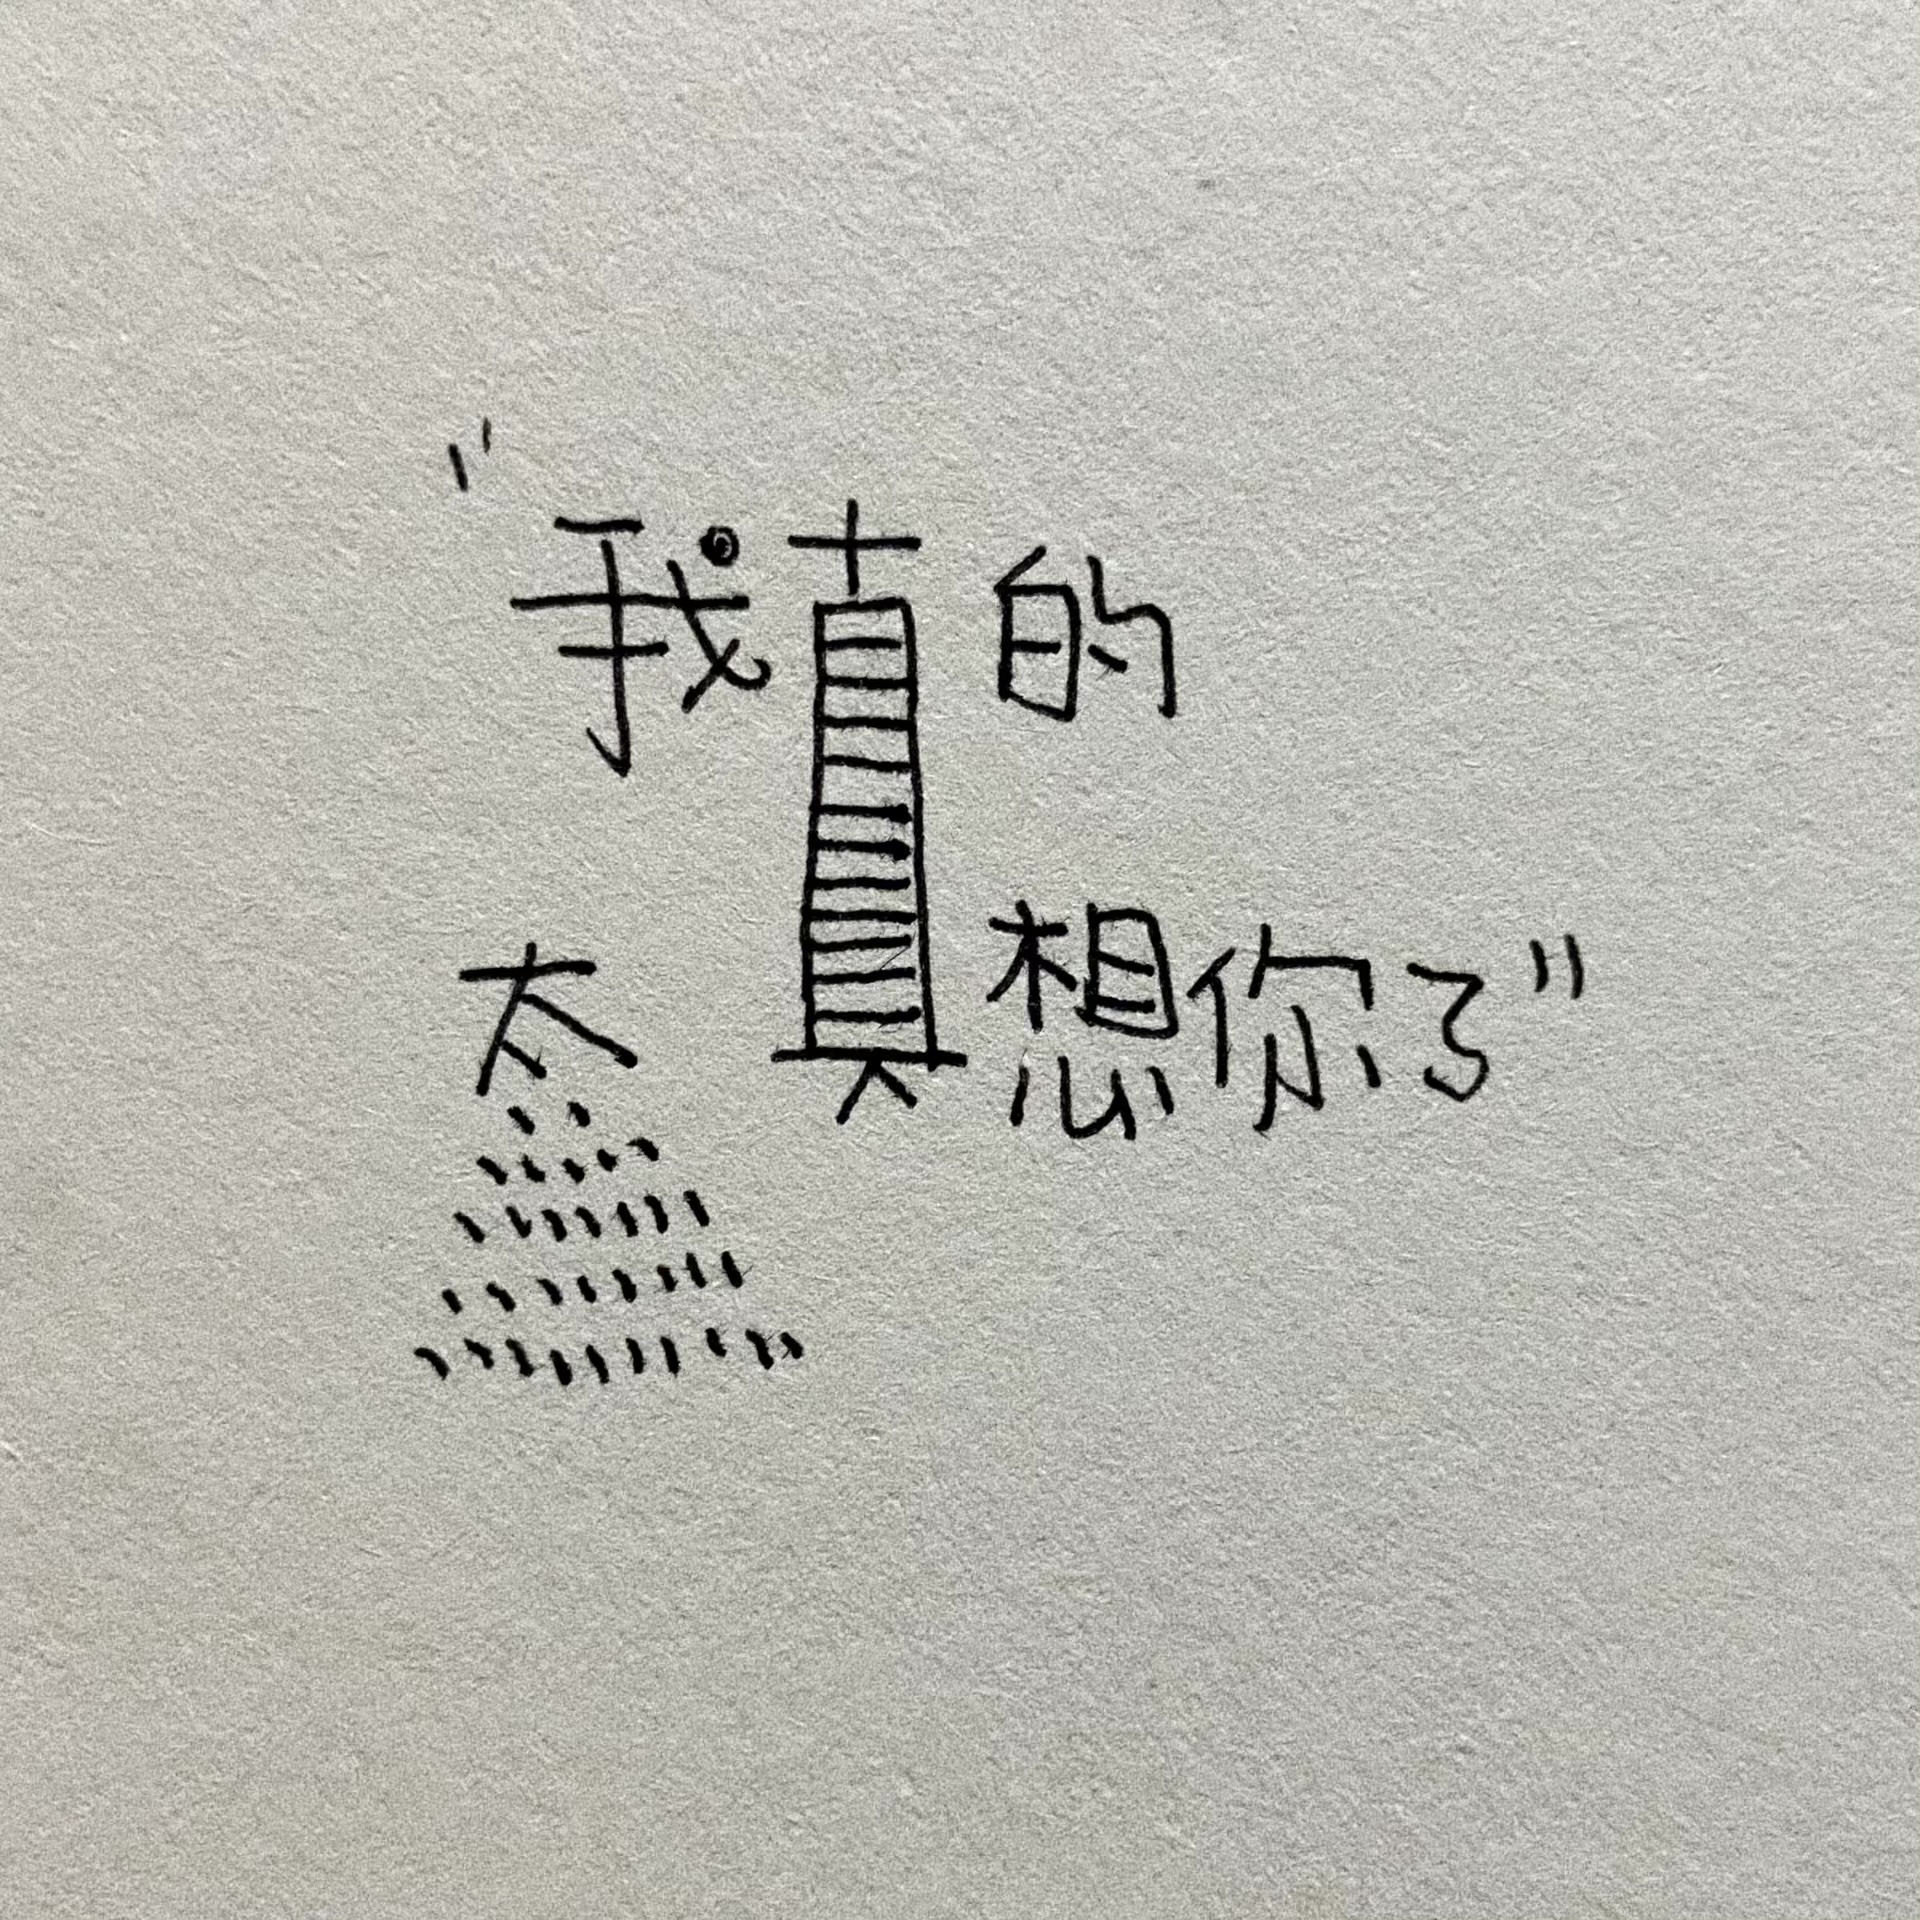 "我真的
太想你了"